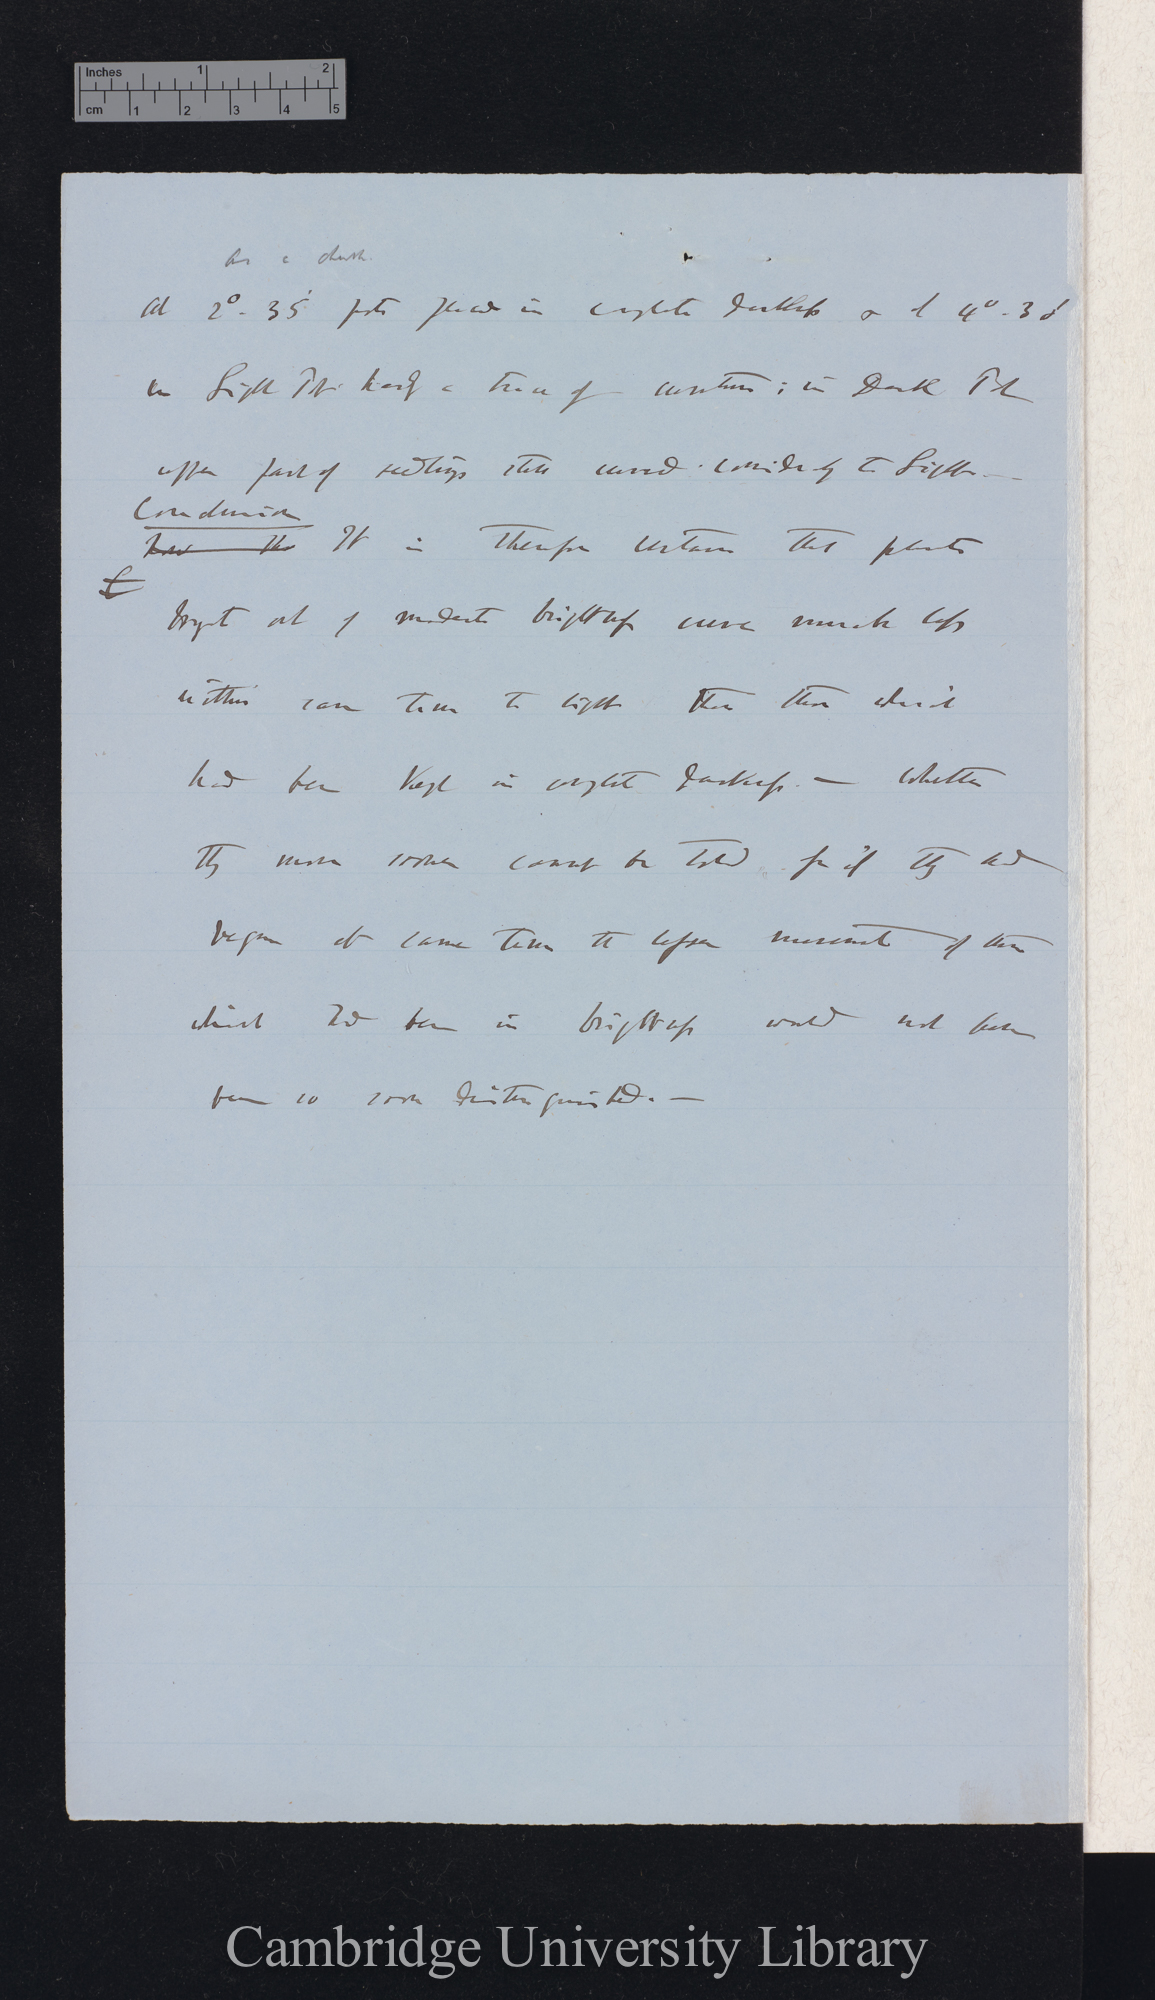 Inches 1 2
cm 1 2 3 4 5
At 2°. 35' pots placed in complete darkness & at 4°. 30'
in Light Pot hardly a trace of curvature; in Dark Pot
upper part of seedlings still curved considerably to Light.—
Conclusion
It is therefore certain that plants
brought out of moderate brightness curve much less
within same time to light than those which
had been kept in complete darkness. — Whether
they move sooner cannot be told for if they had
began at same time the lesser movement of those
which had been in brightness would not have
been so soon distinguished. —
Cambridge University Library